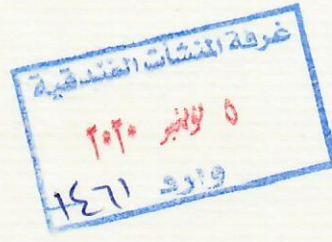 غرفة المنشآت الفندقية
٥ نوفمبر ٢٠٢٠
وارد ١٤٦١